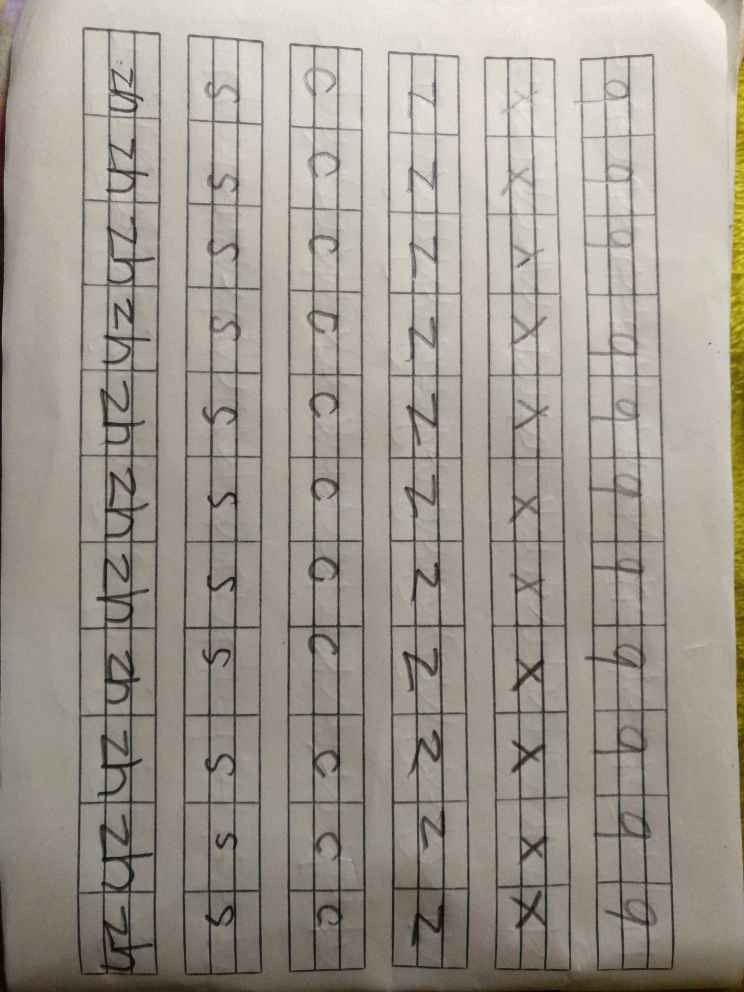 q q q q q q q q q q q
x x x x x x x x x x x
z z z z z z z z z z z
c c c c c c c c c c c
s s s s s s s s s s s
zh zh zh zh zh zh zh zh zh zh zh